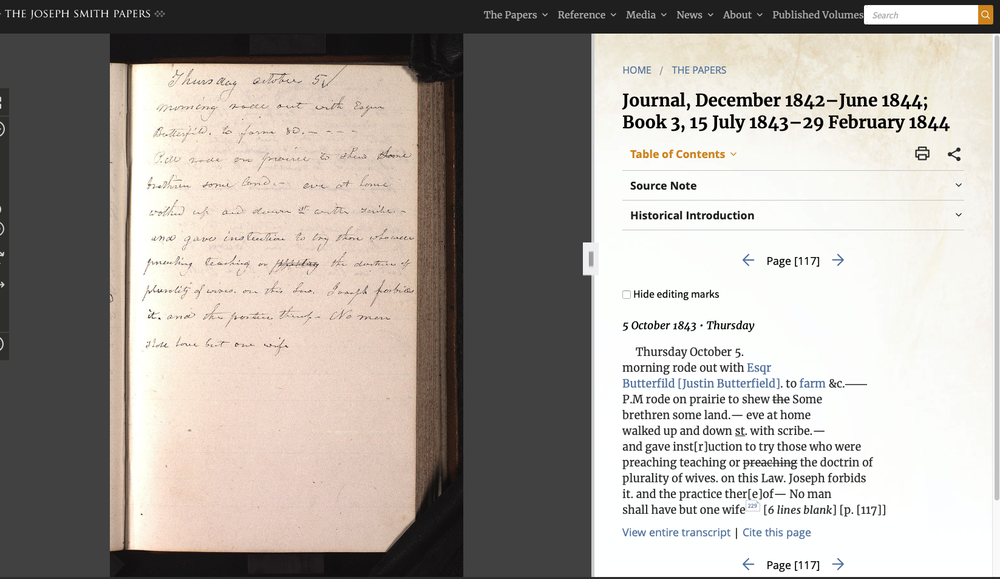 THE JOSEPH SMITH PAPERS
The Papers
Reference
Media
News
About
Published Volumes
Search
Thursday october 5
morning rode out with Esqr
Butterfild. to farm &c. — - - -
P.M rode on prairie to shew the Some
brethren some land. — eve at home
walked up and down st. with scribe —
and gave instuction to try those who were
preaching teaching or preaching the doctrin of
plurality of wives. on this Law. Joseph forbids
it. and the practice therof — No man
shall have but one wife
HOME / THE PAPERS
Journal, December 1842–June 1844;
Book 3, 15 July 1843–29 February 1844
Table of Contents
Source Note
Historical Introduction
Page [117]
Hide editing marks
5 October 1843 • Thursday
Thursday October 5.
morning rode out with Esqr
Butterfild [Justin Butterfield]. to farm &c.——
P.M rode on prairie to shew the Some
brethren some land.— eve at home
walked up and down st. with scribe.—
and gave inst[r]uction to try those who were
preaching teaching or preaching the doctrin of
plurality of wives. on this Law. Joseph forbids
it. and the practice ther[e]of— No man
shall have but one wife 229 [6 lines blank] [p. [117]]
View entire transcript | Cite this page
Page [117]